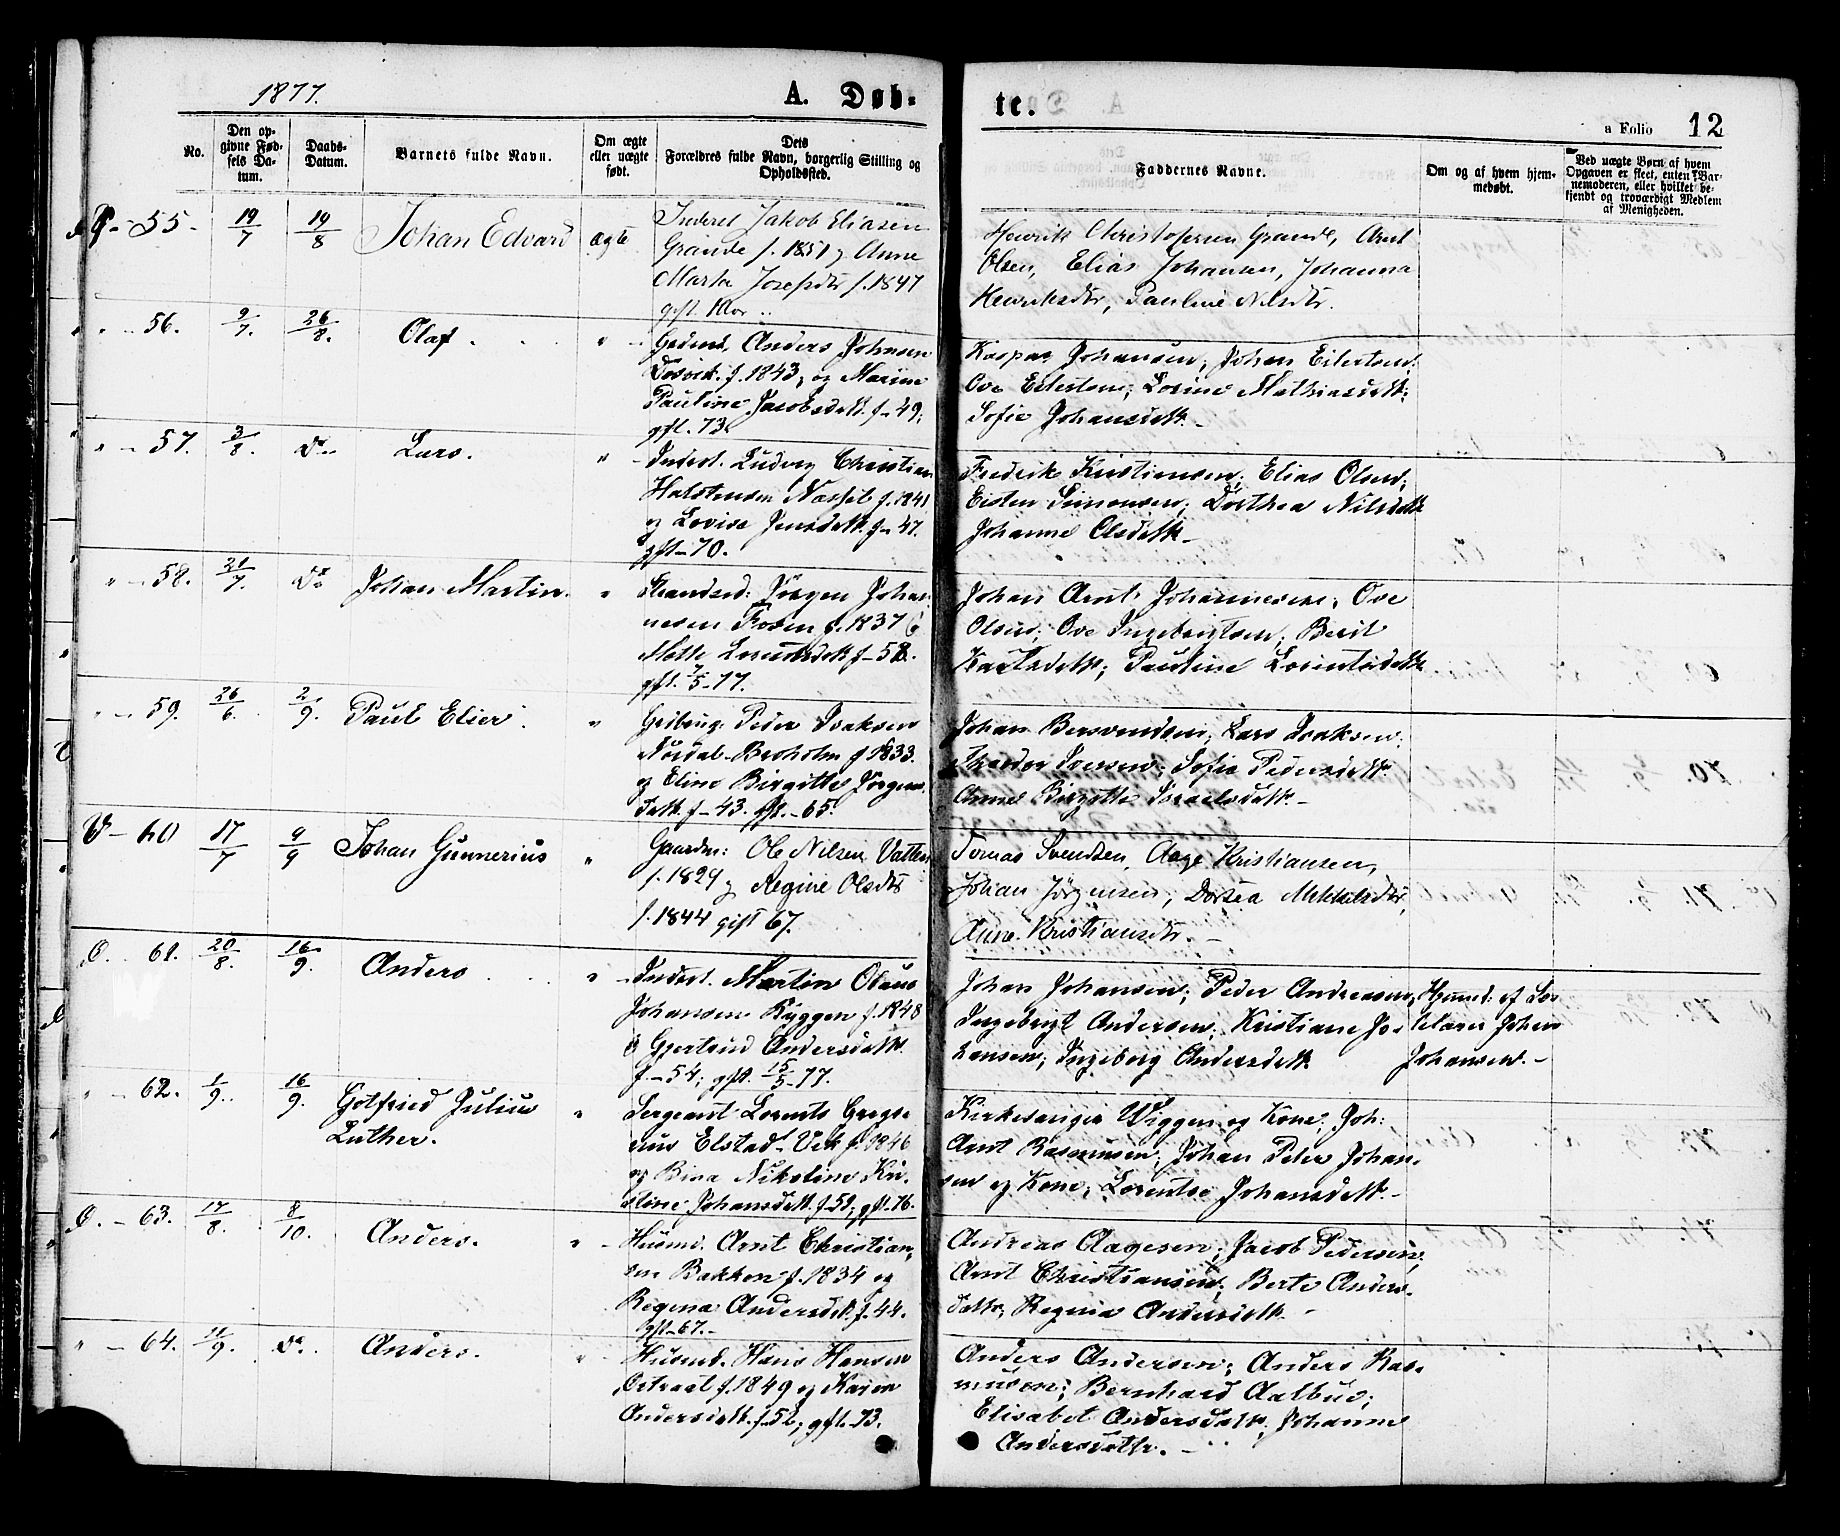 1877.
A. Døb-
te.
a Folio 12
No.
Den op-
givne Fød-
sels Da-
tum.
Daabs-
Datum.
Barnets fulde Navn.
Om ægte
eller uægte
født.
Dets
Forældres fulde Navn, borgerlig Stilling og
Opholdssted.
Faddernes Navne.
Om og af hvem hjem-
medøbt.
Ved uægte Børn af hvem
Opgaven er skeet, enten Bar-
nemoderen, eller hvilket be-
kjendt og troværdigt Medlem
af Menigheden.
55. 19/7 19/8 Johan Edvard ægte
Inderst Jakob Eliasen
Grande f. 1851 og Anne
Marta Josefsdtr f. 1847
gift
Henrik Christofersen Grande, Arnt
Olsen, Elias Johansen, Johanna
Henriksdtr, Pauline Nilsdtr.
" - 56. 9/7. 26/8. Olaf "
Anders Johnsen
f. 1843, og Marine
Pauline Jacobsdatt. f - 49;
gft. 73.
Kaspar Johansen; Johan Eilertsen;
Ove Eilertsen; Lorine Mathiasdatt.;
Sofie Johansdatt. -
" - 57. 3/8. Do Lars. "
Inderst. Ludvig Christian
Halstensen Nasset f. 1841
og Lovise Jensdatt. f - 47.
gft - 70.
Fredrik Kristiansen; Elias Olsen;
Eisten Simonsen; Dorthea Nilsdatt.
Johanne Olsdatt. -
" - 58. 21/7. Do Johan Martin. "
Strandsid: Jörgen Johan-
nesen f. 1837 &
Mette Lorentsdatt f - 52.
gft. 7/5 - 77.
Johan Arnt Johannesen; Ove
Olsen; Ove Ingebrigtsen; Berit
Pauline Lorentsdatt
" - 59. 26/6. 2/9. Paul Elier. "
Peder Isaksen
Nordal-Broholm f 1833.
og Eline Birgitte Jörgens-
datt. f - 43. gft. - 65.
Johan Bersvendsen; Lars Isaksen;
Iversen; Sofie Pedersdatt.
Anne Birgitte Israelsdatt. -
V - 60 17/7 9/9 Johan Gunnerius "
Gaardm: Ole Nilsen Vatten
f. 1829 og Regine Olsdtr
f. 1844 gift 67.
Tomas Svendsen, Aage Kristiansen,
Johan Jørgensen, Dortea Mikkelsdtr,
Anne Kristiansdtr. -
Ö. - 61. 20/8. 16/9. Anders "
Inderst. Martin Olaus
Johansen Ryggen f. 1848
& Gjertrud Andersdatt.
f. - 54; gft. 15/5 - 77.
Johan Johansen; Peder Andreasen;
Ingebrigt Andersen; Kristiane Jo-
hansen; Ingeborg Andersdatt.
Hjemmed: af
Lærer Johan
Johansen. -
" - 62. 1/9. 16/9. Gotfried Julius
Luther. "
Sergeant Lorents Gregs-
Elstad - Vek f. 1846
og Bina Nikoline Kri-
stine Johansdatt. f - 52; gft. 76.
Kirkesanger Wiggen og Kone; Joh:
Arnt Rasmussen; Johan Peter Johan-
sen og Kone; Lorentse Johansdatt. -
Ö. - 63. 17/8. 8/10. Anders. "
Husmd. Arnt Christian-
sen Bakken f. 1834 og
Regina Andersdatt. f. 44.
gft - 67. -
Andreas Aagesen; Jacob Pedersen;
Arnt Christiansen; Berte Anders-
datt; Regina Andersdatt. -
" - 64. 11/9. Do. Anders. "
Husmd. Hans Hansen
f. 1849 og Karen
Andersdatt. f - 52; gft. 73.
Anders Andersen; Anders Ras-
musen; Bernhard Aalbu;
Elisabet Andersdatt. Johanne
Andersdattr. -